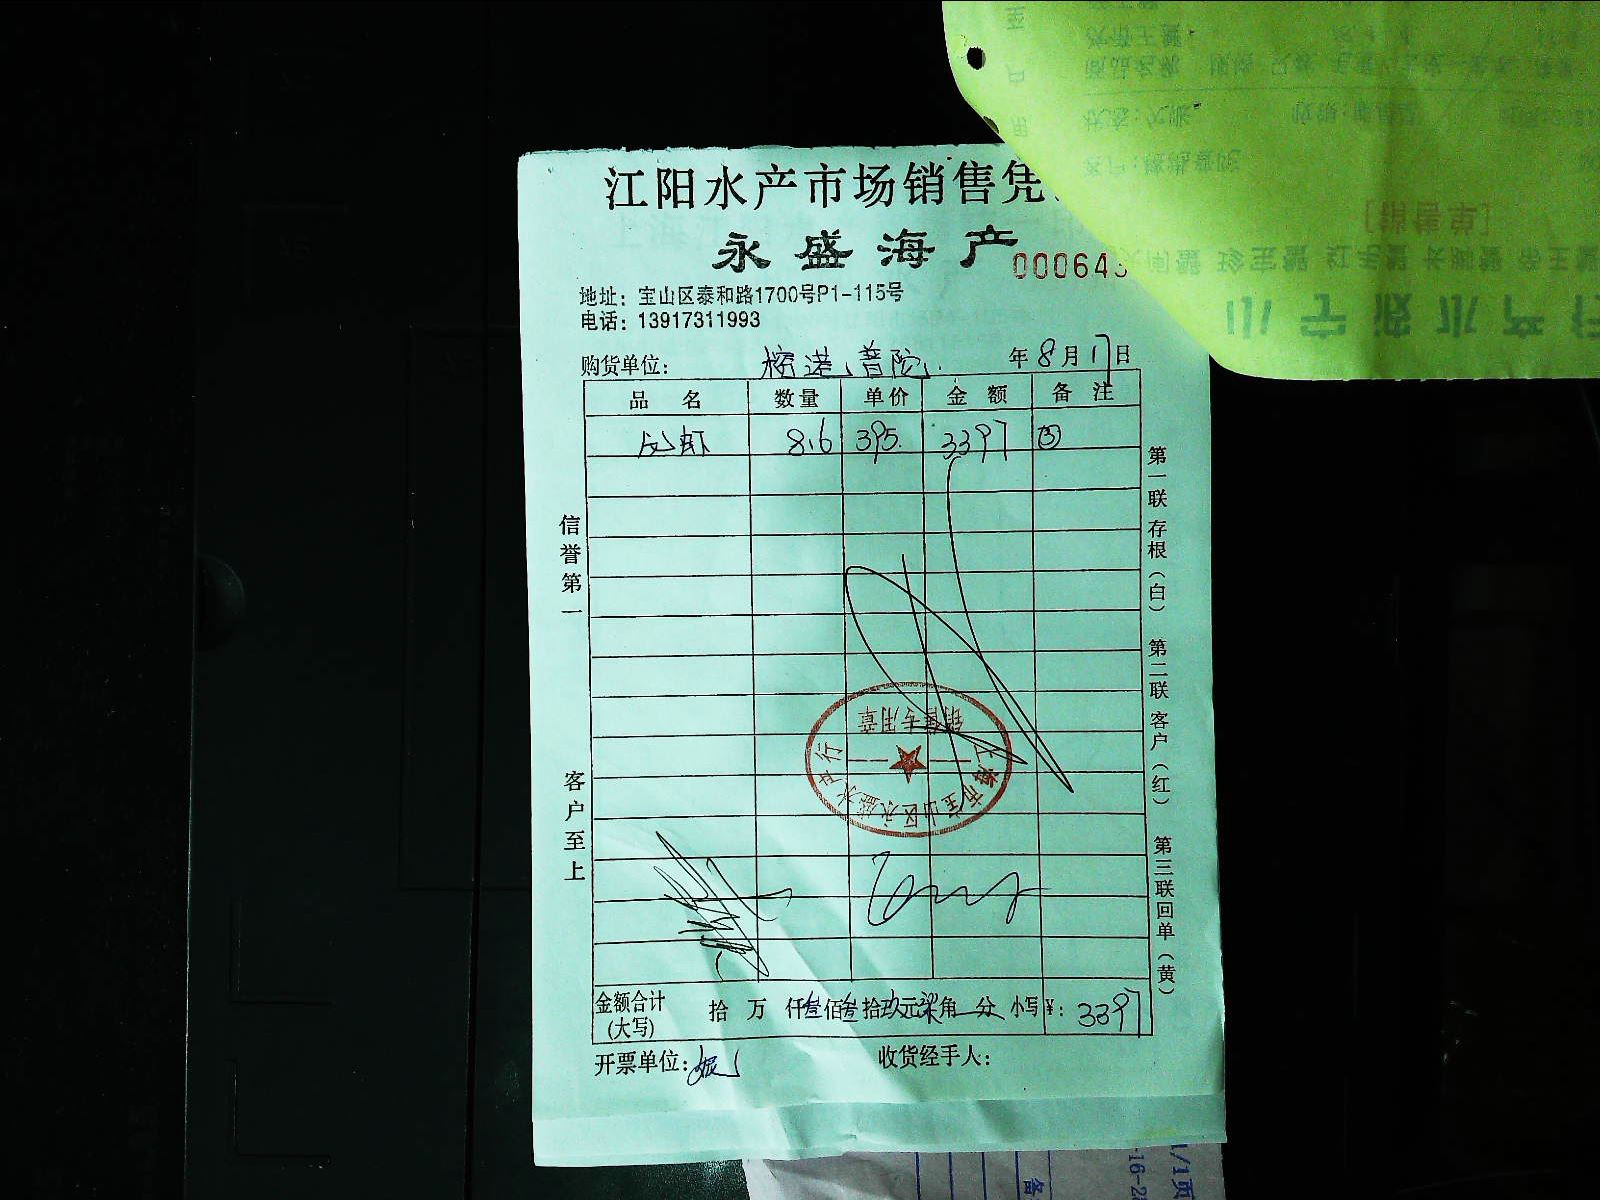 江阳水产市场销售凭
永盛海产
000645
地址：宝山区泰和路1700号P1-115号
电话：13917311993
购货单位：榕港、普陀 年8月17日
品名 数量 单价 金额 备注
虾 8.6 395. 3397 ③
信誉第一
客户至上
第一联存根（白）第二联客户（红）第三联回单（黄）
销售专用章
上海市宝山区永盛水产行
金额合计(大写) 拾 万 仟叁佰叁拾玖元柒角 分 小写¥：3397
开票单位： 收货经手人：
[销售单]
客户:
状态:欠账
商品名称
1/1页
-16-2
备